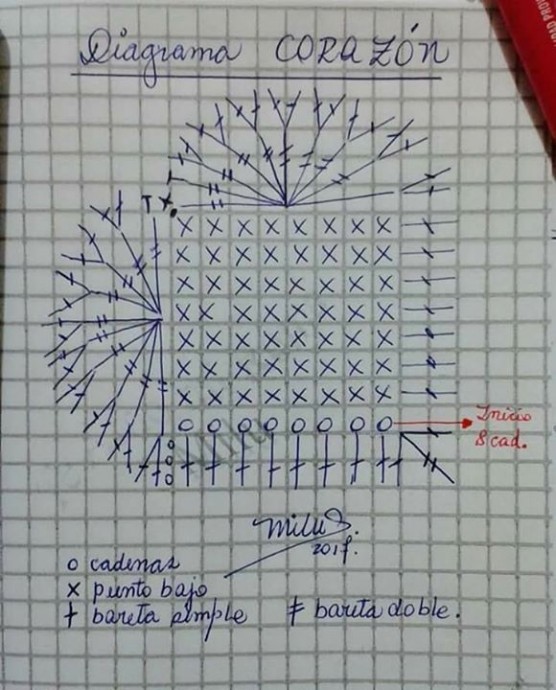 Diagrama CORAZÓN
Inicio
8 cad.
milu
o cadenas
x punto bajo
ƚ bareta simple ǂ bareta doble.